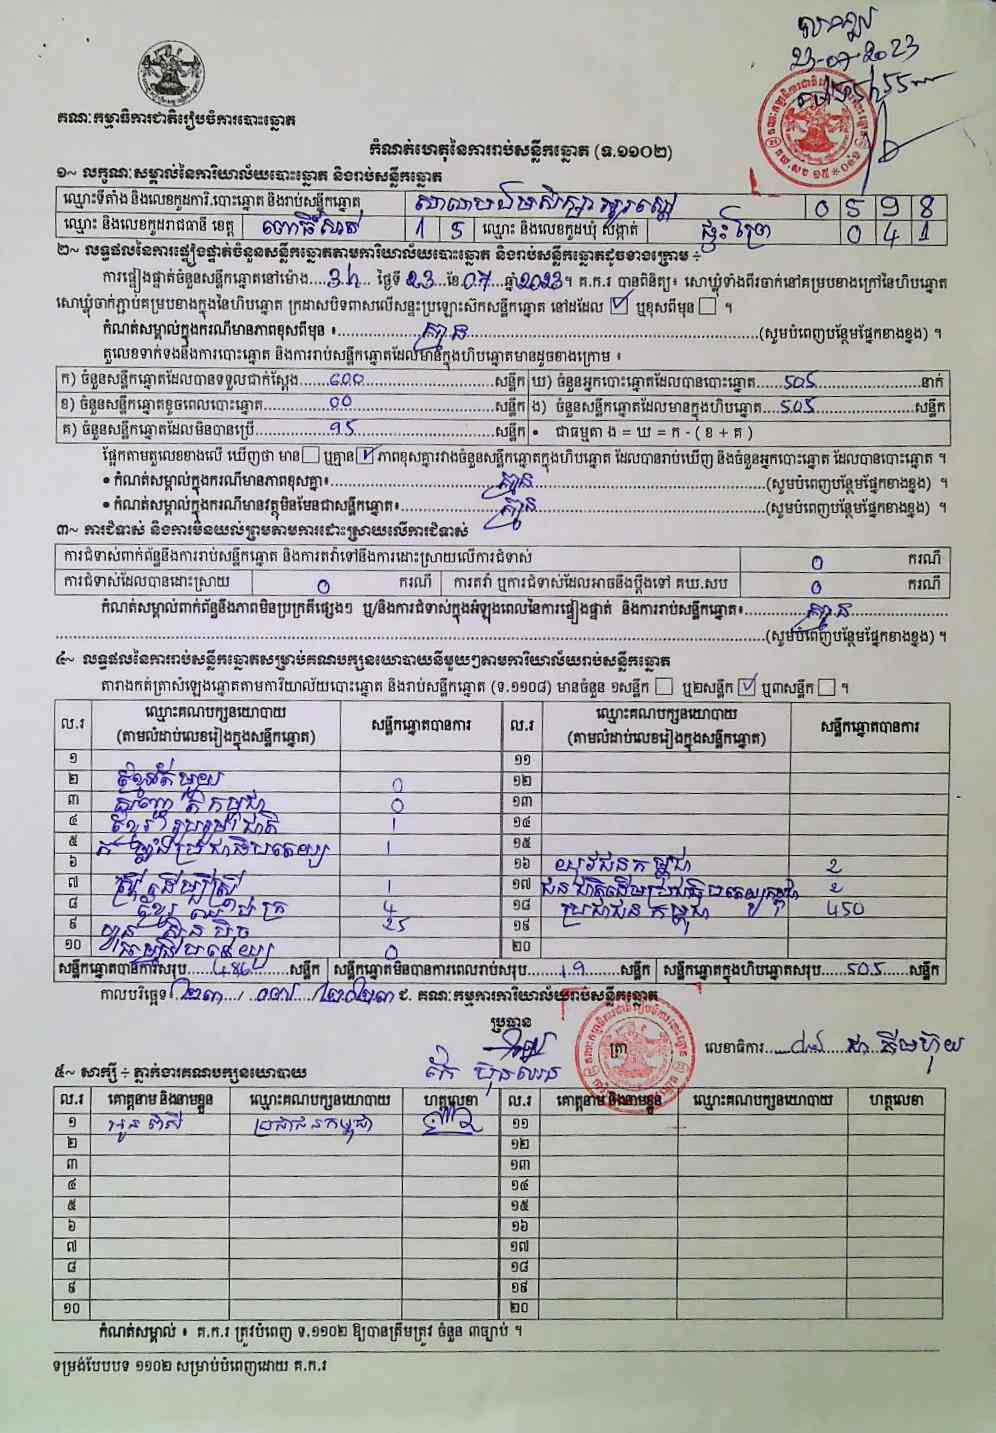 23-07-2023
គណៈកម្មាធិការជាតិរៀបចំការបោះឆ្នោត
កំណត់ហេតុនៃការរាប់សន្លឹកឆ្នោត (ទ.១១០២)
១~ លក្ខណៈសម្គាល់នៃការិយាល័យបោះឆ្នោត និងរាប់សន្លឹកឆ្នោត
ឈ្មោះទីតាំង និងលេខកូដការិ.បោះឆ្នោត និងរាប់សន្លឹកឆ្នោត 0 5 9 8
ឈ្មោះ និងលេខកូដរាជធានី ខេត្ត ពោធិ៍សាត់ 1 5 ឈ្មោះ និងលេខកូដឃុំ សង្កាត់ 0 4 1
២~ លទ្ធផលនៃការផ្ទៀងផ្ទាត់ចំនួនសន្លឹកឆ្នោតតាមការិយាល័យបោះឆ្នោត និងរាប់សន្លឹកឆ្នោតដូចខាងក្រោម ÷
ការផ្ទៀងផ្ទាត់ចំនួនសន្លឹកឆ្នោតនៅម៉ោង....3h.... ថ្ងៃទី 23 ខែ 07 ឆ្នាំ 2023។ គ.ក.រ បានពិនិត្យ៖ សោឃ្មុំទាំងពីរចាក់នៅគម្របខាងក្រៅនៃហិបឆ្នោត
សោឃ្មុំចាក់ភ្ជាប់គម្របខាងក្នុងនៃហិបឆ្នោត ក្រដាសបិទពាសលើសន្ទះប្រឡោះស៊កសន្លឹកឆ្នោត នៅដដែល ☑ ឬខុសពីមុន ☐ ។
កំណត់សម្គាល់ក្នុងករណីមានភាពខុសពីមុន ៖ គ្មាន (សូមបំពេញបន្ថែមផ្នែកខាងខ្នង) ។
តួលេខទាក់ទងនឹងការបោះឆ្នោត និងការរាប់សន្លឹកឆ្នោតដែលមានក្នុងហិបឆ្នោតមានដូចខាងក្រោម ៖
ក) ចំនួនសន្លឹកឆ្នោតដែលបានទទួលជាក់ស្តែង 600 សន្លឹក ឃ) ចំនួនអ្នកបោះឆ្នោតដែលបានបោះឆ្នោត 505 នាក់
ខ) ចំនួនសន្លឹកឆ្នោតខូចពេលបោះឆ្នោត 00 សន្លឹក ង) ចំនួនសន្លឹកឆ្នោតដែលមានក្នុងហិបឆ្នោត 505 សន្លឹក
គ) ចំនួនសន្លឹកឆ្នោតដែលមិនបានប្រើ 95 សន្លឹក • ជាធម្មតា ង = ឃ = ក - ( ខ + គ )
ផ្អែកតាមតួលេខខាងលើ ឃើញថា មាន ☐ ឬគ្មាន ☑ ភាពខុសគ្នារវាងចំនួនសន្លឹកឆ្នោតក្នុងហិបឆ្នោត ដែលបានរាប់ឃើញ និងចំនួនអ្នកបោះឆ្នោត ដែលបានបោះឆ្នោត ។
• កំណត់សម្គាល់ក្នុងករណីមានភាពខុសគ្នា៖ គ្មាន (សូមបំពេញបន្ថែមផ្នែកខាងខ្នង) ។
• កំណត់សម្គាល់ក្នុងករណីមានវត្ថុមិនមែនជាសន្លឹកឆ្នោត៖ គ្មាន (សូមបំពេញបន្ថែមផ្នែកខាងខ្នង) ។
៣~ ការជំទាស់ និងការមិនយល់ព្រមតាមការដោះស្រាយលើការជំទាស់
ការជំទាស់ពាក់ព័ន្ធនឹងការរាប់សន្លឹកឆ្នោត និងការតវ៉ាទៅនឹងការដោះស្រាយលើការជំទាស់ 0 ករណី
ការជំទាស់ដែលបានដោះស្រាយ 0 ករណី ការតវ៉ា ឬការជំទាស់ដែលអាចនឹងប្តឹងទៅ គឃ.សប 0 ករណី
កំណត់សម្គាល់ពាក់ព័ន្ធនឹងភាពមិនប្រក្រតីផ្សេងៗ ឬ/និងការជំទាស់ក្នុងអំឡុងពេលនៃការផ្ទៀងផ្ទាត់ និងការរាប់សន្លឹកឆ្នោត៖ គ្មាន
(សូមបំពេញបន្ថែមផ្នែកខាងខ្នង) ។
៤~ លទ្ធផលនៃការរាប់សន្លឹកឆ្នោតសម្រាប់គណបក្សនយោបាយនីមួយៗតាមការិយាល័យរាប់សន្លឹកឆ្នោត
តារាងកត់ត្រាសំឡេងឆ្នោតតាមការិយាល័យបោះឆ្នោត និងរាប់សន្លឹកឆ្នោត (ទ.១១០៨) មានចំនួន ១សន្លឹក ☐ ឬ២សន្លឹក ☑ ឬ៣សន្លឹក ☐ ។
ល.រ ឈ្មោះគណបក្សនយោបាយ (តាមលំដាប់លេខរៀងក្នុងសន្លឹកឆ្នោត) សន្លឹកឆ្នោតបានការ ល.រ ឈ្មោះគណបក្សនយោបាយ (តាមលំដាប់លេខរៀងក្នុងសន្លឹកឆ្នោត) សន្លឹកឆ្នោតបានការ
១ ១១
២ ខ្មែរតែមួយ 0 ១២
៣ 0 ១៣
៤ ខ្មែររួបរួមជាតិ 1 ១៤
៥ 1 ១៥
៦ ១៦ យុវជនកម្ពុជា 2
៧ ស្ត្រីដើម្បីស្ត្រី 1 ១៧ 2
៨ 4 ១៨ ប្រជាជនកម្ពុជា 450
៩ 25 ១៩
១០ 0 ២០
សន្លឹកឆ្នោតបានការសរុប 486 សន្លឹក សន្លឹកឆ្នោតមិនបានការពេលរាប់សរុប 19 សន្លឹក សន្លឹកឆ្នោតក្នុងហិបឆ្នោតសរុប 505 សន្លឹក
កាលបរិច្ឆេទ ២៣ / ០៧ / ២០២៣ ជ. គណៈកម្មការការិយាល័យរាប់សន្លឹកឆ្នោត
ប្រធាន
ត្រា លេខាធិការ
៥~ សាក្សី ÷ ភ្នាក់ងារគណបក្សនយោបាយ
ល.រ គោត្តនាម និងនាមខ្លួន ឈ្មោះគណបក្សនយោបាយ ហត្ថលេខា ល.រ គោត្តនាម និងនាមខ្លួន ឈ្មោះគណបក្សនយោបាយ ហត្ថលេខា
១ ប្រជាជនកម្ពុជា ១១
២ ១២
៣ ១៣
៤ ១៤
៥ ១៥
៦ ១៦
៧ ១៧
៨ ១៨
៩ ១៩
១០ ២០
កំណត់សម្គាល់ ៖ គ.ក.រ ត្រូវបំពេញ ទ.១១០២ ឱ្យបានត្រឹមត្រូវ ចំនួន ៣ច្បាប់ ។
ទម្រង់បែបបទ ១១០២ សម្រាប់បំពេញដោយ គ.ក.រ